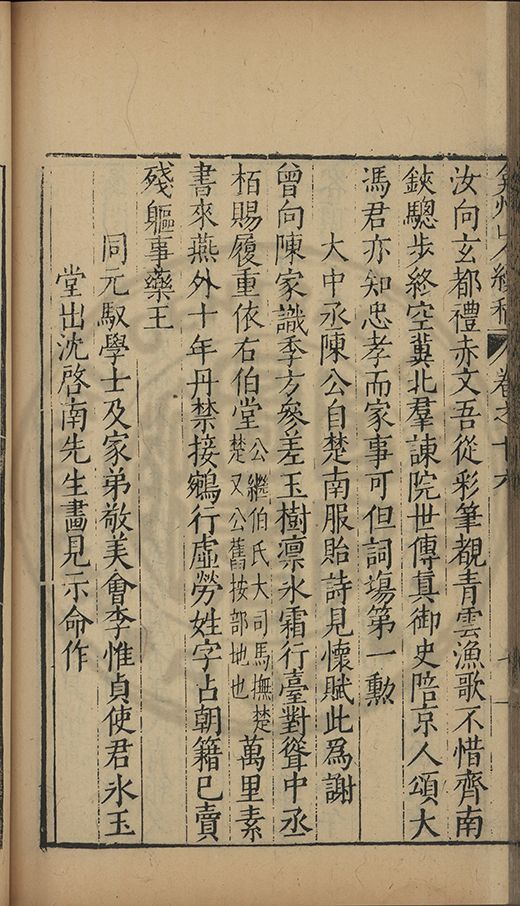 汝向玄都禮赤文吾從彩筆覩青雲漁歌不惜齊南
鋏驄步終空冀北羣諫院世傳真御史陪京人頌大
馮君亦知忠孝而家事可但詞塲第一勲
大中丞陳公自楚南服貽詩見懷賦此爲謝
曾向陳家識季方參差玉樹凛氷霜行臺對聳中丞
栢賜履重依右伯堂公繼伯氏大司馬撫楚楚又公舊按部地也萬里素
書來燕外十年丹禁接鵷行虛勞姓字占朝籍巳賣
殘軀事藥王
同元馭學士及家弟敬美會李惟貞使君氷玉
堂出沈啓南先生畫見示命作